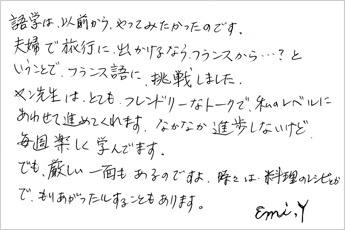 語学は、以前から、やってみたかったのです。
夫婦で旅行に、出かけるなら、フランスから…？と
いうことで、フランス語に、挑戦しました。
ヤン先生は、とても、フレンドリーなトークで、私のレベルに
あわせて進めてくれます。なかなか進歩しないけど、
毎週楽しく学んでます。
でも、厳しい一面もあるのですよ。時には、料理のレシピとか
で、もりあがったりすることもあります。
Emi,Y